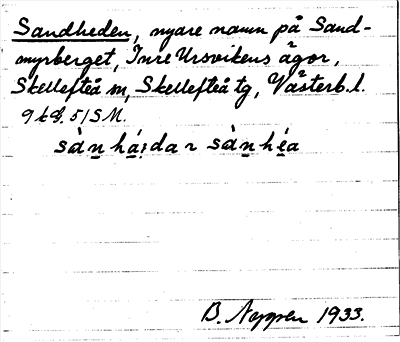 Sandheden, nyare namn på Sand-
myrberget, Inre Ursvikens ägor,
Skellefteå m, Skellefteå tg, Västerb. l.
51 S M.
B. Nygren 1933.